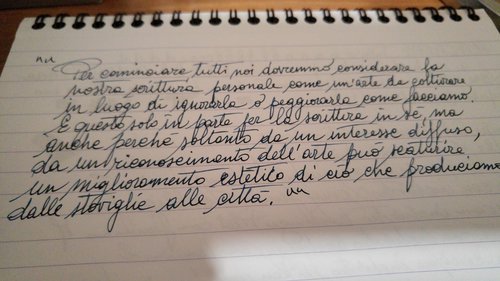 "Per cominciare, tutti noi dovremmo considerare la
nostra scrittura personale come un'arte da coltivare
in luogo di ignorarla o peggiorarla come facciamo.
E questo solo in parte per la scrittura in sé, ma
anche perché soltanto da un interesse diffuso,
da un riconoscimento dell'arte può scaturire
un miglioramento estetico di ciò che produciamo
dalle stoviglie alle città. "